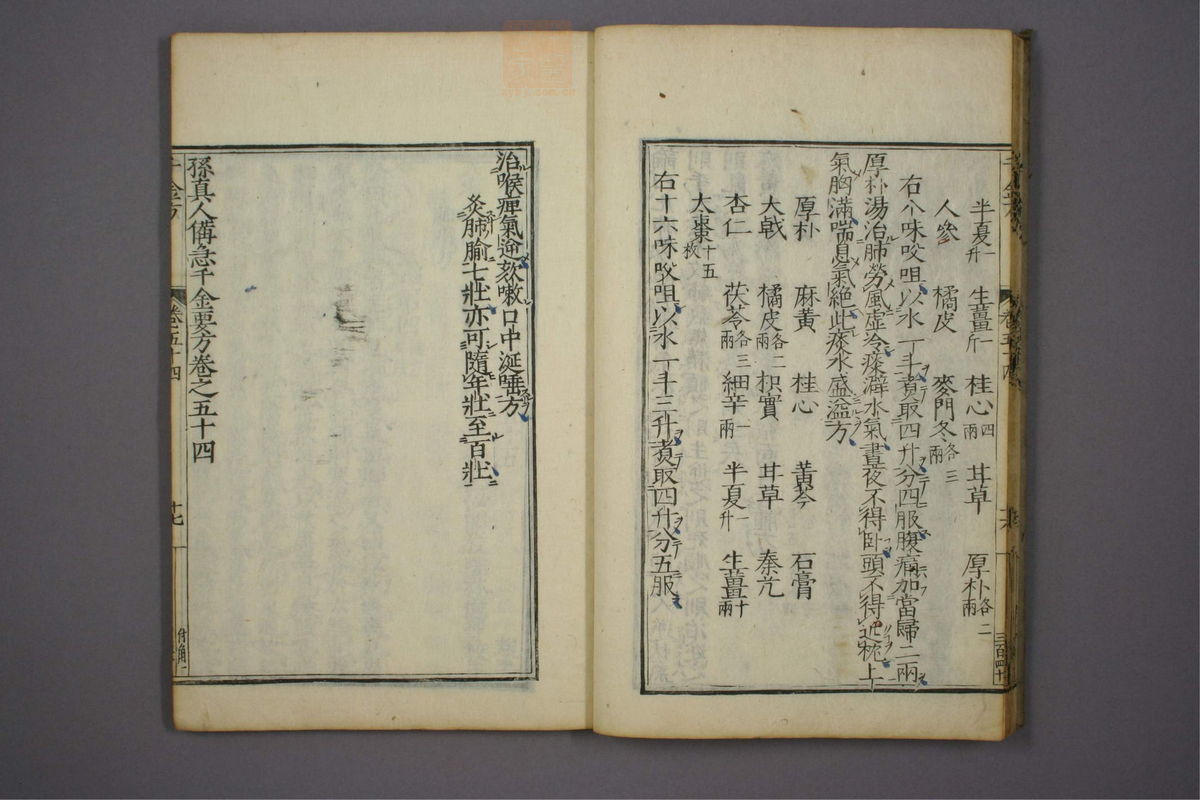 半夏一升 生薑一斤 桂心四兩 甘草 厚朴各二兩
人參 橘皮 麥門冬各三兩
右八味㕮咀以水一斗煑取四升分四服腹痛加當歸二兩
厚朴湯治肺勞風虛冷痰澼水氣晝夜不得臥頭不得近枕上
氣胸滿喘息氣絕此痰水盛溢方
厚朴 麻黃 桂心 黃芩 石膏
大戟 橘皮各二兩 枳實 甘草 秦艽
杏仁 茯苓各三兩 細辛一兩 半夏一升 生薑十兩
大棗十五枚
右十六味㕮咀以水一斗三升煑取四升分五服
治喉痹氣逆欬嗽口中涎唾方
灸肺腧七壯亦可隨年壯至百壯
孫真人備急千金要方卷之五十四
千金方 卷之五十四 十七